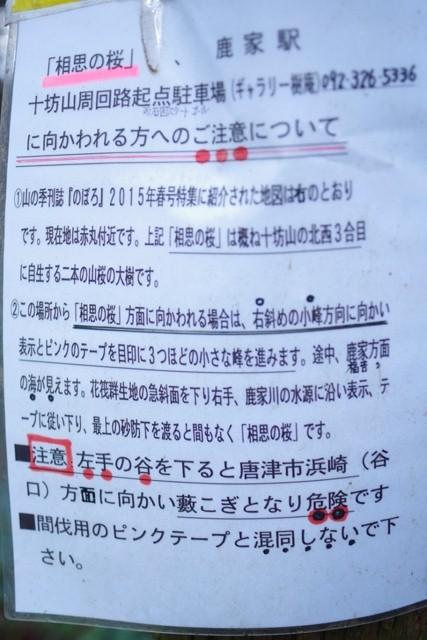 「相思の桜」、鹿家駅
十坊山周回路起点駐車場（ギャラリー樹庵）092-326-5336
に向かわれる方へのご注意について
①山の季刊誌『のぼろ』２０１５年春号特集に紹介された地図は右のとおり
です。現在地は赤丸付近です。上記「相思の桜」は概ね十坊山の北西３合目
に自生する二本の山桜の大樹です。
②この場所から「相思の桜」方面に向かわれる場合は、右斜めの小峰方向に向かい
表示とピンクのテープを目印に３つほどの小さな峰を進みます。途中、鹿家方面
の海が見えます。花筏群生地の急斜面を下り右手、鹿家川の水源に沿い表示、テ
ープに従い下り、最上の砂防下を渡ると間もなく「相思の桜」です。
■注意 左手の谷を下ると唐津市浜崎（谷
口）方面に向かい藪こぎとなり危険です
■間伐用のピンクテープと混同しないで下
さい。